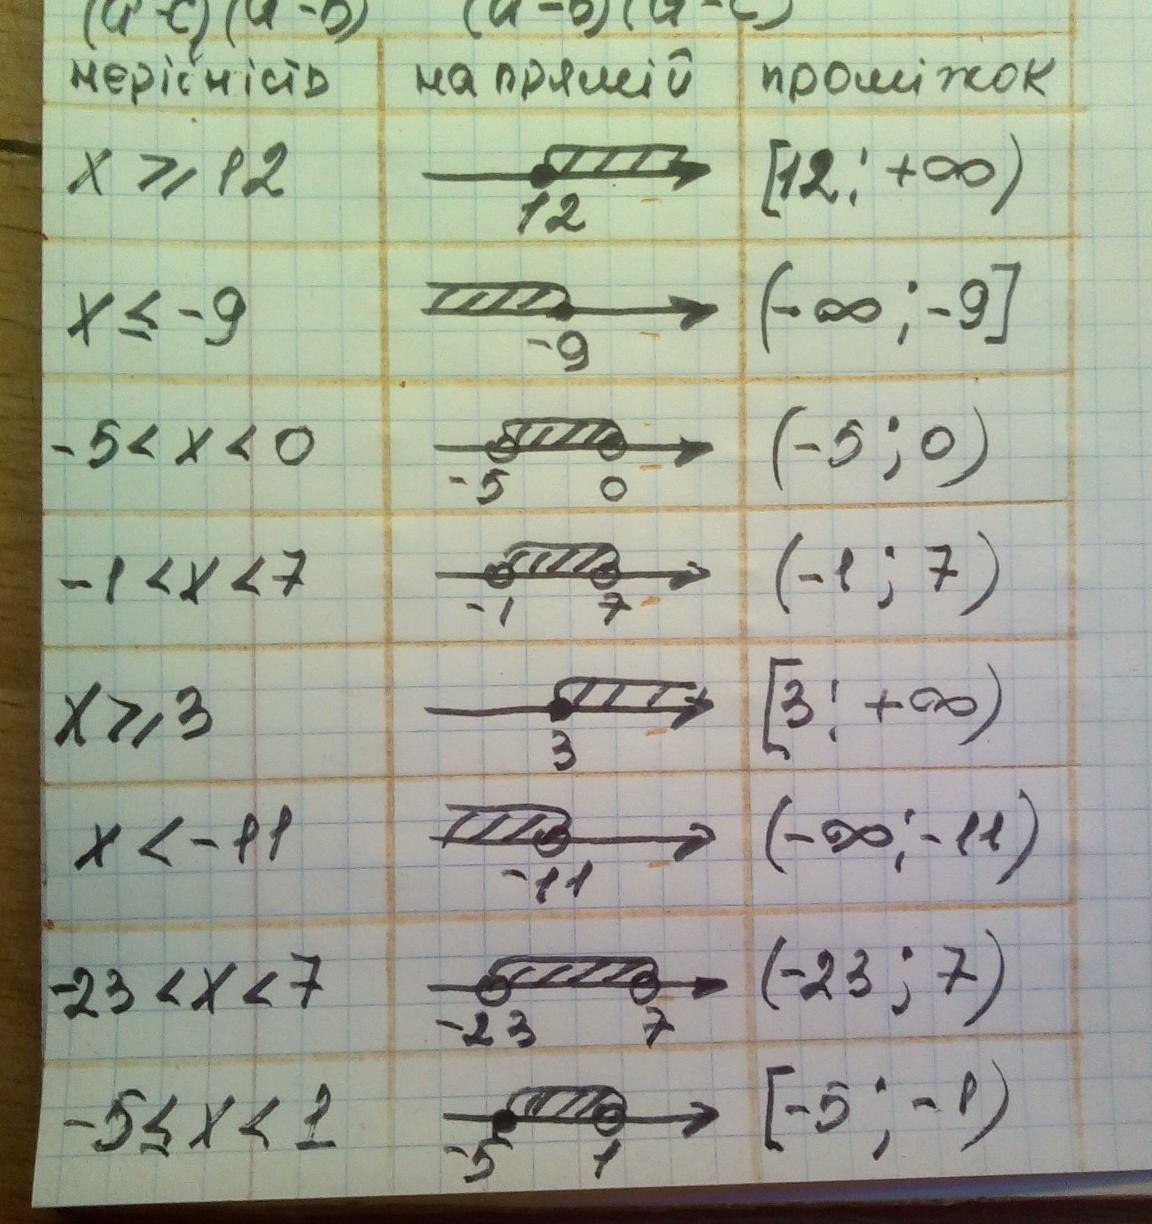 (a-c)(a-b) (a-b)(a-c)
нерівність на прямій проміжок
x ⩾ 12 12 [12; +∞)
x ≤ -9 -9 (-∞; -9]
-5 < x < 0 -5 0 (-5; 0)
-1 < x < 7 -1 7 (-1; 7)
x ⩾ 3 3 [3; +∞)
x < -11 -11 (-∞; -11)
-23 < x < 7 -23 7 (-23; 7)
-5 ≤ x < 1 -5 1 [-5; -1)